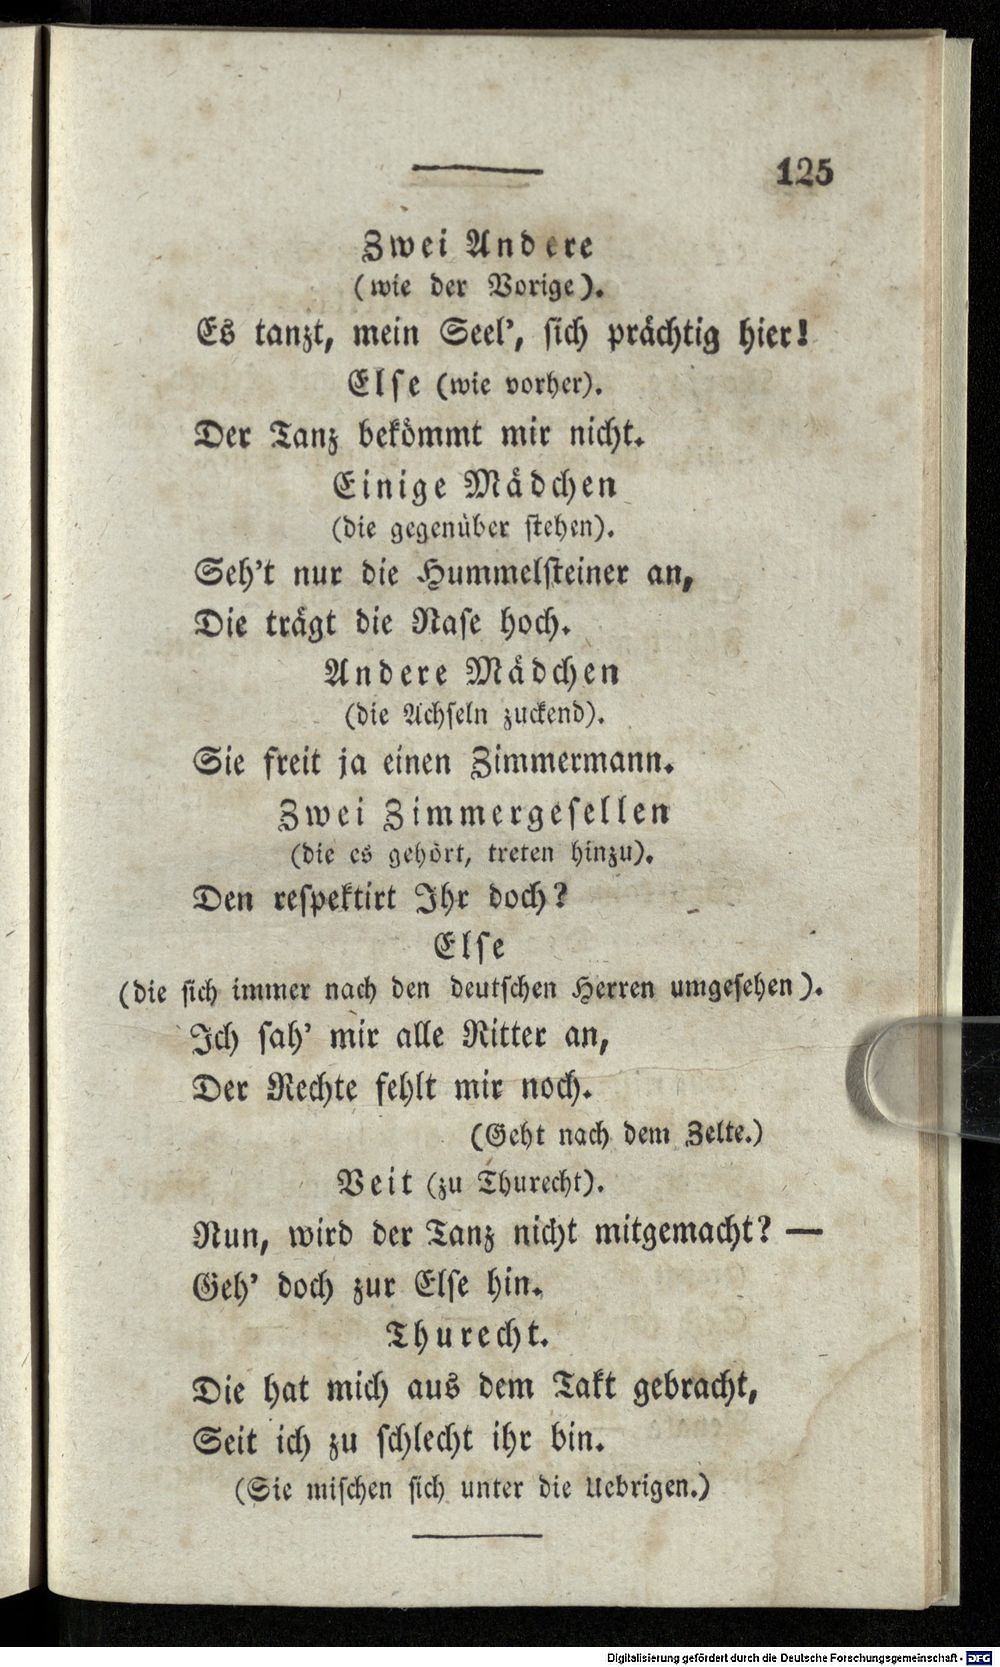 125
Zwei Andere
(wie der Vorige).
Es tanzt, mein Seel’, sich prächtig hier!
Else (wie vorher).
Der Tanz bekömmt mir nicht.
Einige Mädchen
(die gegenüber stehen).
Seh’t nur die Hummelsteiner an,
Die trägt die Nase hoch.
Andere Mädchen
(die Achseln zuckend).
Sie freit ja einen Zimmermann.
Zwei Zimmergesellen
(die es gehört, treten hinzu).
Den respektirt Ihr doch?
Else
(die sich immer nach den deutschen Herren umgesehen).
Ich sah’ mir alle Ritter an,
Der Rechte fehlt mir noch.
(Geht nach dem Zelte.)
Veit (zu Thurecht).
Nun, wird der Tanz nicht mitgemacht? —
Geh’ doch zur Else hin.
Thurecht.
Die hat mich aus dem Takt gebracht,
Seit ich zu schlecht ihr bin.
(Sie mischen sich unter die Uebrigen.)
Digitalisierung gefördert durch die Deutsche Forschungsgemeinschaft - DFG